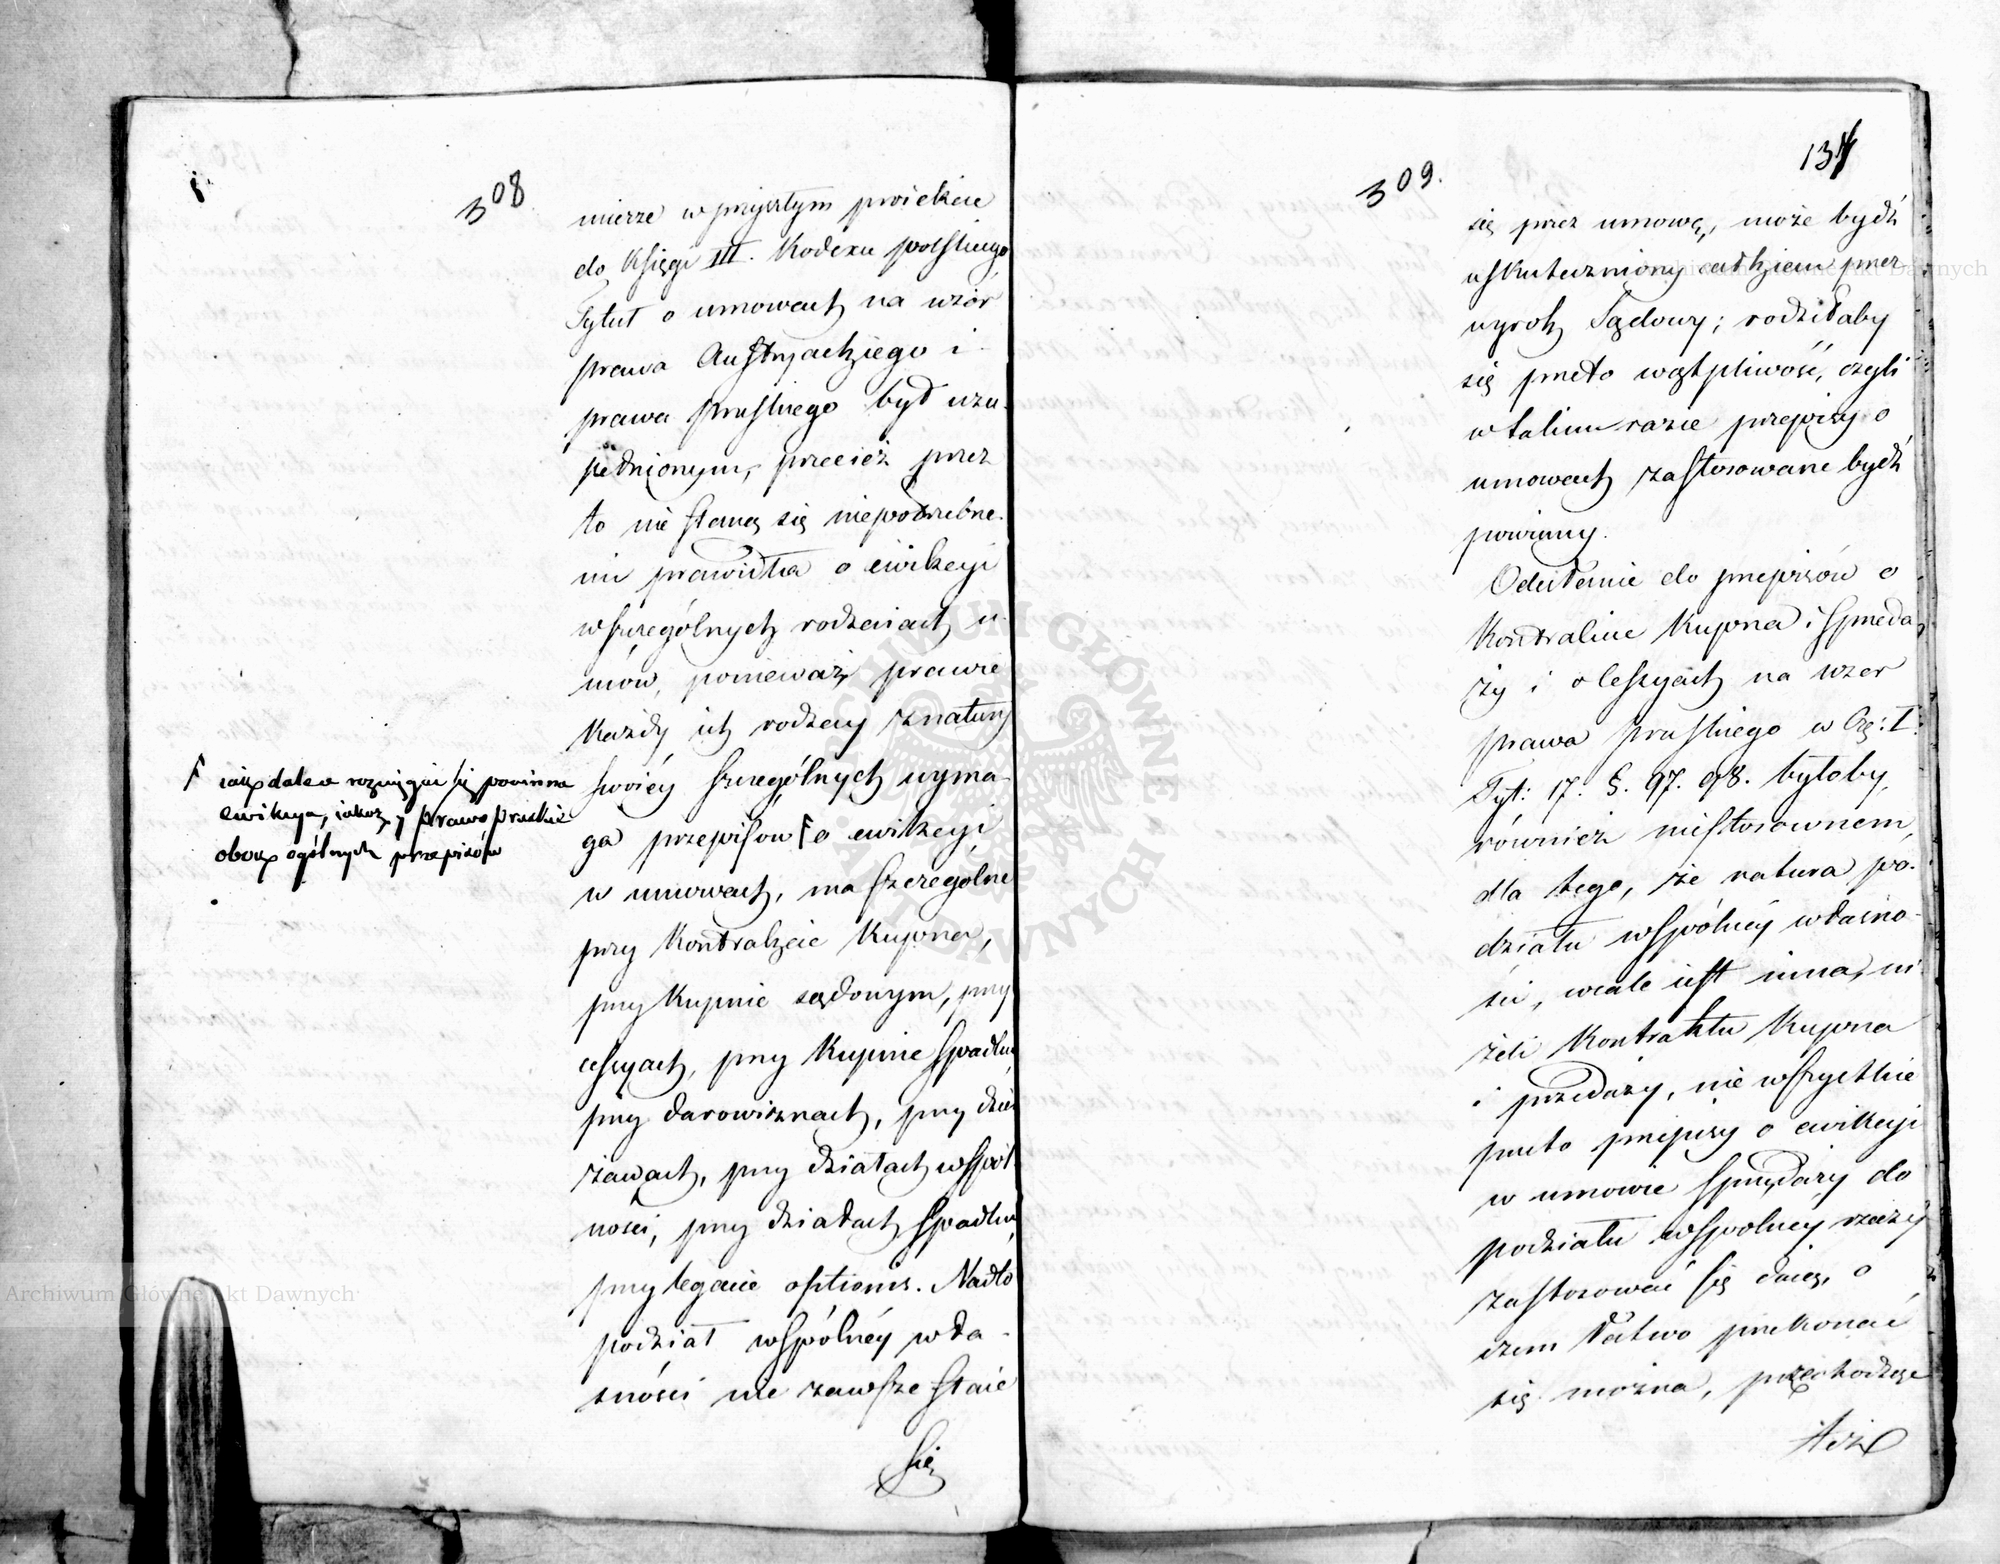 308
mierze w przyszłym proiekcie
do Księgi III. Kodexu polskiego
Tytuł o umowach na wzór
prawa Austryackiego i
prawa pruskiego był uzu-
pełnionym, przecież przez
to nie staną się niepotrzebne-
mi prawidła o ewikcyi
w szczególnych rodzaiach u-
mów, ponieważ prawie
każdy ich rodzay z natury
swoiéy szczególnych wyma-
ga przepisów Γ o ewikcyi
w umowach, ma szczególne
przy Kontrakcie Kupna,
przy Kupnie sądowym, przy
cessyach, przy Kupnie spadku,
przy darowiznach, przy dzier
żawach, przy działach wspól
ności, przy działach spadku,
przy legacie optionis. Nadto
podział wspólnéy wła-
sności nie zawsze staie
się
Γ iak daleko rozciągać się powinna
ewikcya, iakoż y prawo pruskie
obok ogólnych przepisów
309.
134
się przez umowę, może bydź
uskuteczniony całkiem przez
wyrok Sądowy; rodziłaby
się przeto wątpliwość, czyli
w takim razie przepisy o
umowach zastosowane bydź
powinny.
Odesłanie do przepisów o
Kontrakcie Kupna i sprzeda
ży i o cessyach na wzór
prawa pruskiego w Czę: I.
Tyt: 17. §. 97. 98. byłoby
również niestosownem,
dla tego, że natura po-
działu wspólnéy własno-
ści, wcale iest inna, ni
żeli Kontraktu Kupna
i przedaży, nie wszystkie
przeto przepisy o ewikcyi
w umowie sprzedaży do
podziału wspólney rzeczy
zastosować się daią, o
czem łatwo przekonać
się można, przechodząc